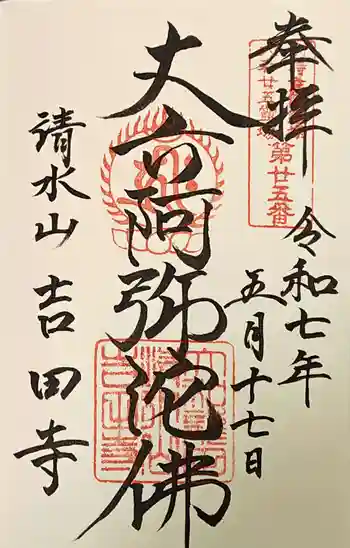 奉拝
第廿五番
令和七年
五月十七日
丈六阿弥陀佛
清水山 吉田寺